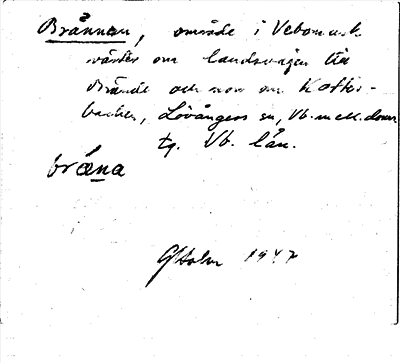 Brännan, område i Vebomark
väster om landsvägen till
Brände och norr om Kotte-
backen, Lövångers sn, Vb. mell. doms.
tg. Vb. län.
bræna
GHolm 1947